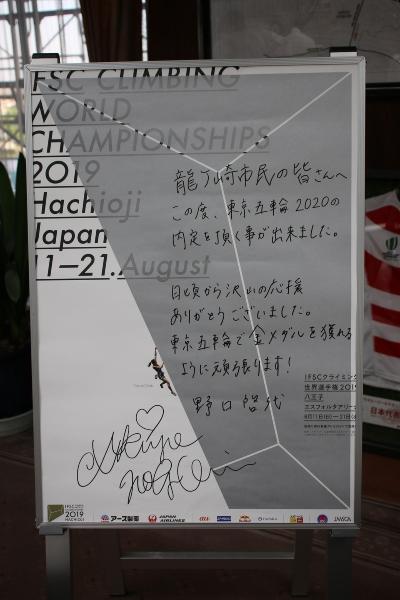 IFSC CLIMBING
WORLD
CHAMPIONSHIPS
2019
Hachioji
Japan
11–21. August
龍ケ崎市民の皆さんへ
この度、東京五輪2020の
内定を頂く事が出来ました。
日頃から沢山の応援
ありがとうございました。
東京五輪で金メダルを獲れる
ように頑張ります!
野口啓代
IFSCクライミング
世界選手権2019
八王子
エスフォルタアリーナ
2019
HACHIOJI
アース製薬
JAPAN AIRLINES
au
日本代表